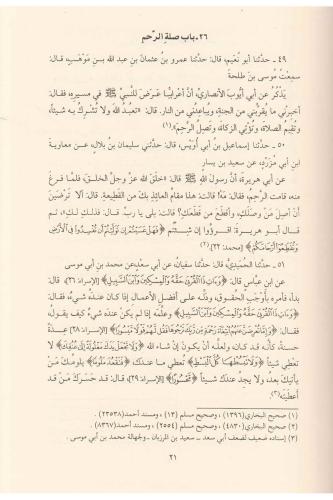 ٢٦ ـ باب صلة الرَّحم
٤٩ ـ حدّثنا أبو نُعيم، قال: حدّثنا عمرو بن عثمان بن عبد الله بن مَوْهَب، قال:
سمعتُ موسى بن طلحة
يذكُرُ عن أبي أيوبَ الأنصاريِّ، أنّ أعرابيًّا عَرَضَ للنبيِّ ﷺ في مسيرِهِ، فقال:
أخبِرْني ما يقرِّبُني من الجنةِ، ويباعدُني من النار. قال: «تعبدُ اللهَ ولا تُشركُ به شيئاً،
وتقيمُ الصلاةَ، وتؤتي الزكاةَ، وتَصِلُ الرَّحِم»(١)
٥٠ ـ حدّثنا إسماعيل بن أبي أُوَيْس، قال: حدّثني سليمان بن بلال، عن معاوية
ابن أبي مُزَرِّد، عن سعيد بن يسار
عن أبي هريرةَ، أنّ رسولَ الله ﷺ قال: «خلَقَ اللهُ عزَّ وجلَّ الخلقَ، فلما فرغَ
منه، قامت الرَّحِمُ، فقال: مَهْ! قالت: هذا مقامُ العائذِ بكَ من القطيعةِ. قال: ألا تَرْضَيْنَ
أنْ أصِلَ مَن وصلَكِ، وأقطعَ من قَطَعَكِ؟ قالت: بلى يا ربّ. قال: فذلك لكِ». ثم
قال أبو هريرة: اقرؤوا إن شئتُم ﴿فَهَلْ عَسَيْتُمْ إِن تَوَلَّيْتُمْ أَن تُفْسِدُوا فِي الْأَرْضِ
وَتُقَطِّعُوا أَرْحَامَكُمْ﴾ [محمد: ٢٢](٢)
٥١ ـ حدّثنا الحُمَيدي، قال: حدّثنا سفيان، عن أبي سعد، عن محمد بن أبي موسى
عن ابن عبّاس قال: ﴿وَآتِ ذَا الْقُرْبَىٰ حَقَّهُ وَالْمِسْكِينَ وَابْنَ السَّبِيلِ﴾ [الإسراء: ٢٦]، قال:
بدأ، فأمره بأوجَبِ الحقوق، ودلّه على أفضل الأعمال إذا كان عنده شيءٌ، فقال:
﴿وَآتِ ذَا الْقُرْبَىٰ حَقَّهُ وَالْمِسْكِينَ وَابْنَ السَّبِيلِ﴾ وعلّمه إذا لم يكن عنده شيءٌ كيف يقول،
فقال: ﴿وَإِمَّا تُعْرِضَنَّ عَنْهُمُ ابْتِغَاءَ رَحْمَةٍ مِّن رَّبِّكَ تَرْجُوهَا فَقُل لَّهُمْ قَوْلًا مَّيْسُورًا﴾ [الإسراء: ٢٨] عِدَةً
حسنةً، كأنه قد كان، ولعله أن يكونَ إن شاء الله ﴿وَلَا تَجْعَلْ يَدَكَ مَغْلُولَةً إِلَىٰ عُنُقِكَ﴾ لا
تعطي شيئاً ﴿وَلَا تَبْسُطْهَا كُلَّ الْبَسْطِ﴾ تعطي ما عندك ﴿فَتَقْعُدَ مَلُومًا﴾ يلومُكَ مَنْ
يأتيكَ بعدُ، ولا يجدُ عندك شيئاً ﴿مَّحْسُورًا﴾ [الإسراء: ٢٩]، قال: قد حسَرَكَ مَنْ قد
أعطيتَه(٣)
(١) صحيح البخاري(١٣٩٦)، وصحيح مسلم (١٣)، ومسند أحمد(٢٣٥٣٨).
(٢) صحيح البخاري(٤٨٣٠)، وصحيح مسلم (٢٥٥٤)، ومسند أحمد(٨٣٦٧).
(٣) إسناده ضعيف لضعف أبي سعد ـ سعيد بن المرزبان ـ ولجهالة محمد بن أبي موسى.
٢١